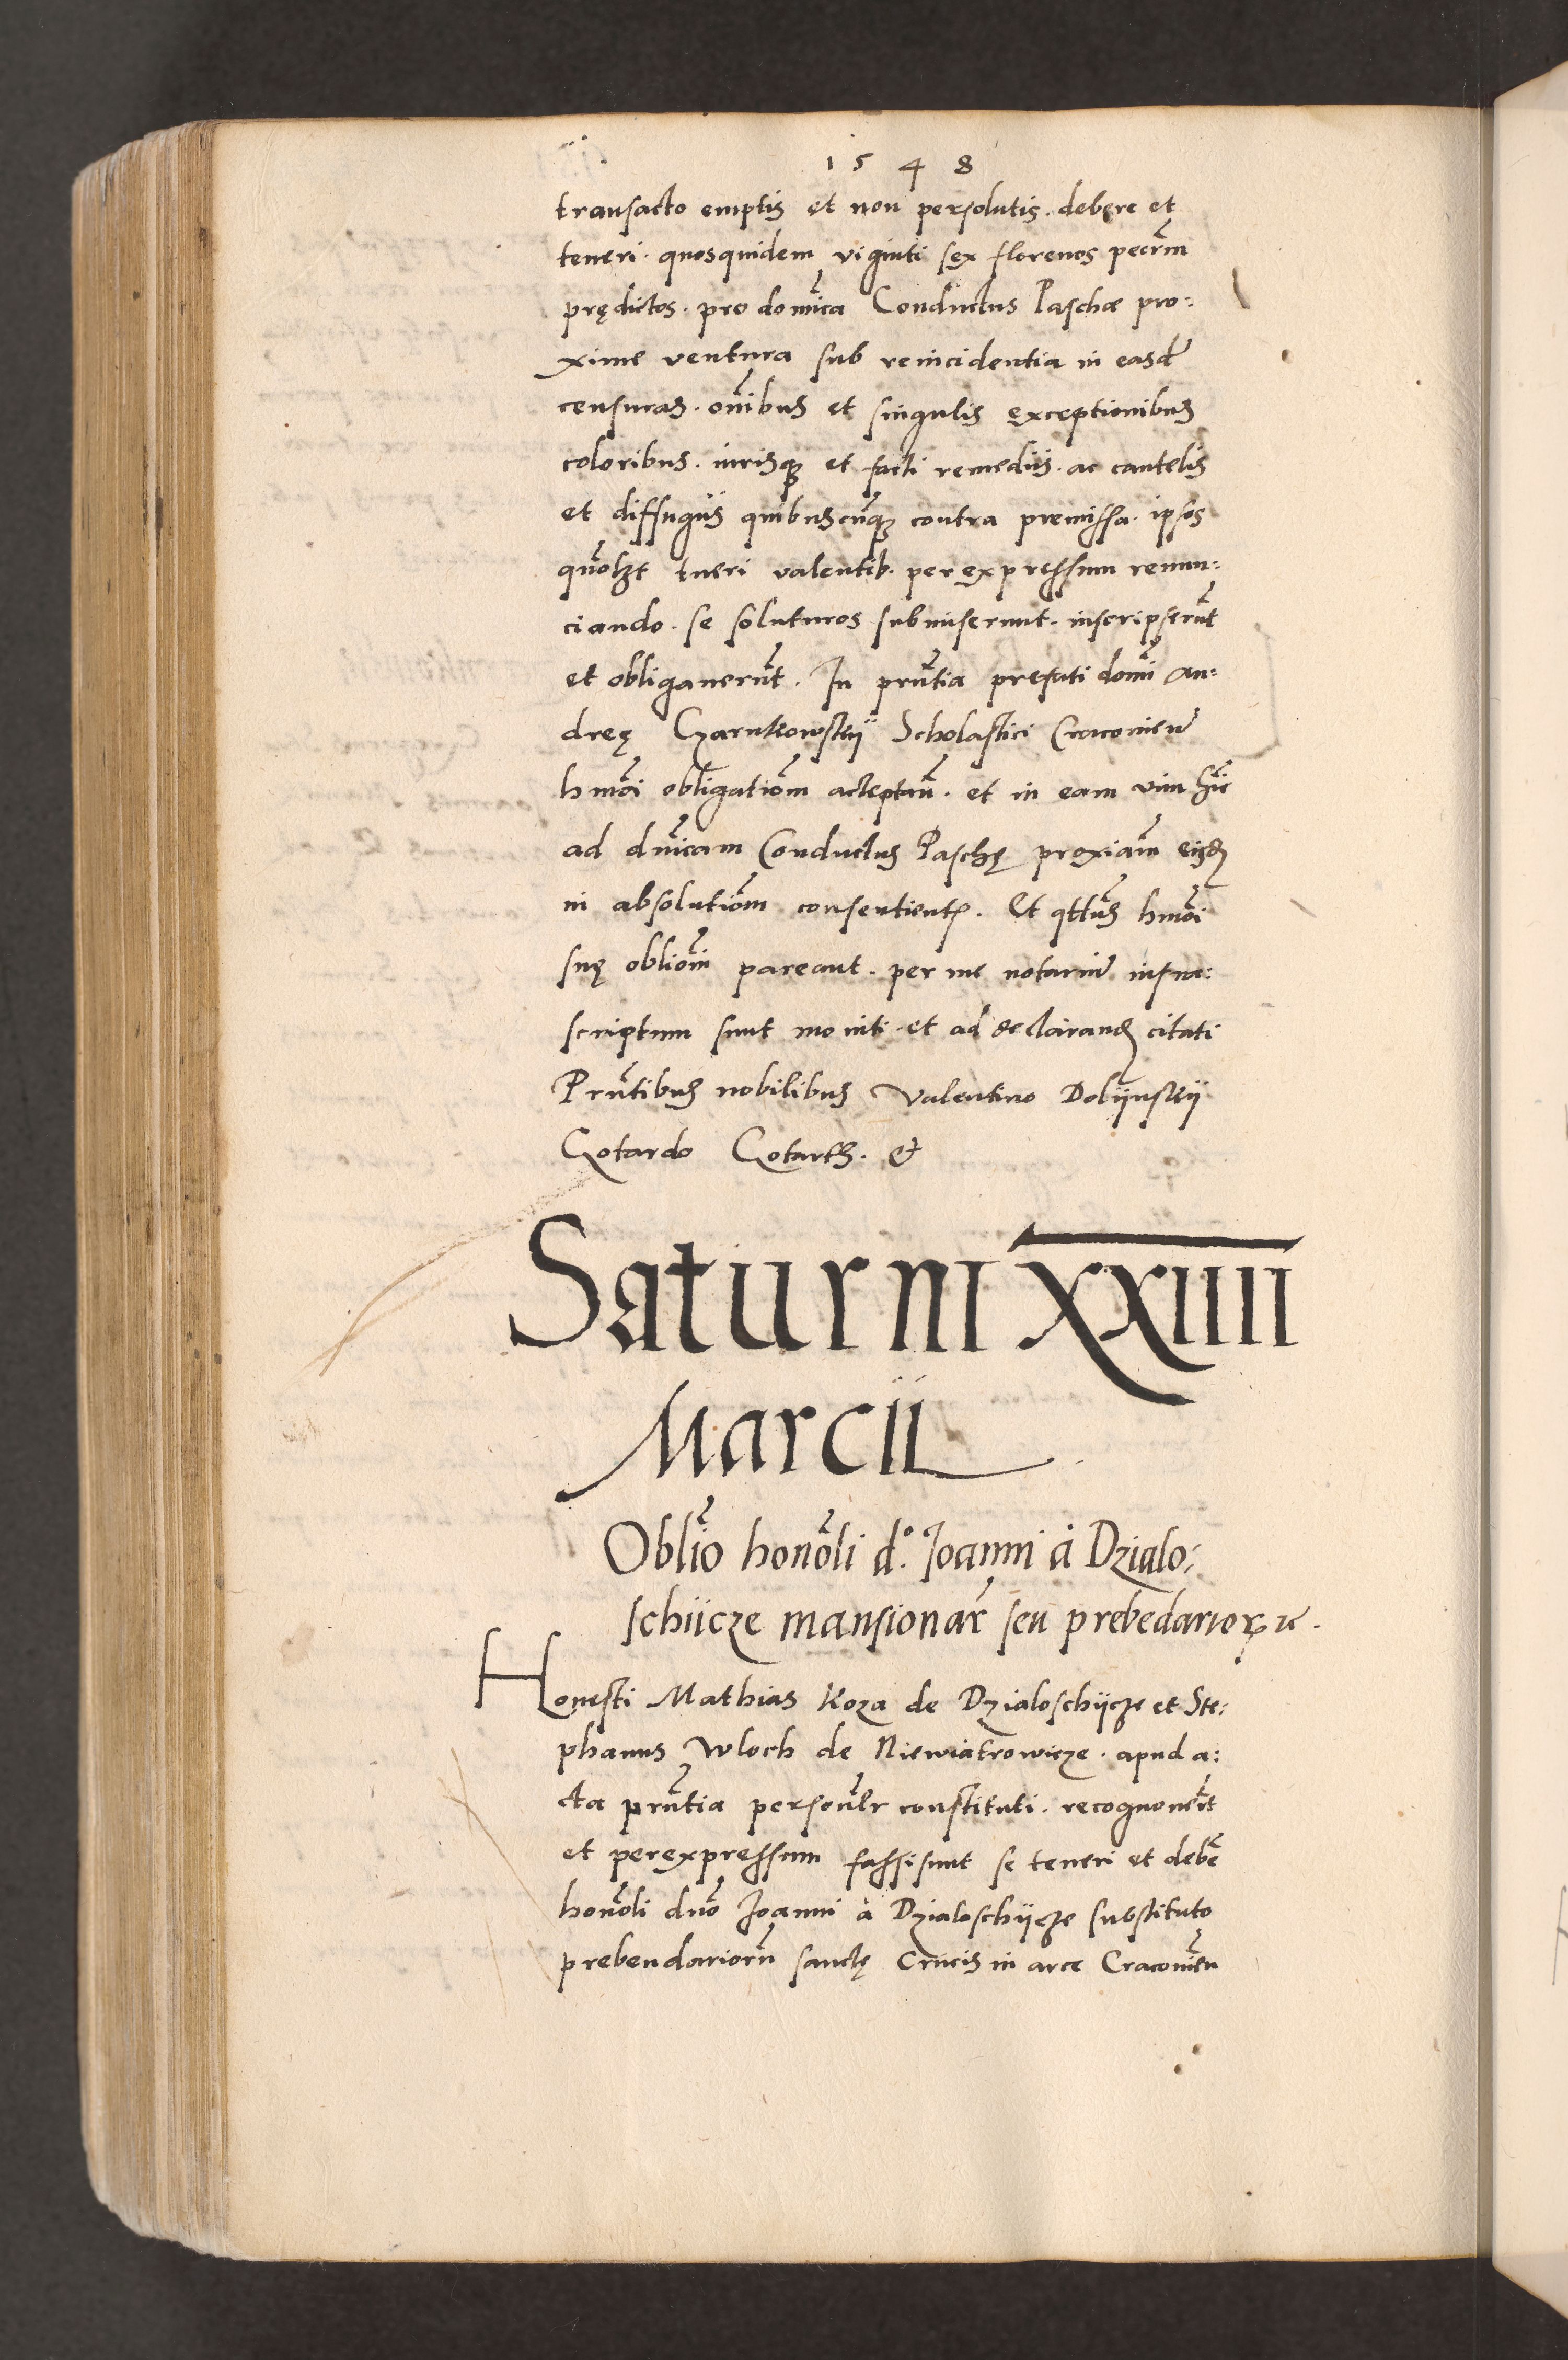 1548
transacto emptis et non persolutis. debere et
teneri. quosquidem viginti sex florenos pecūm
prędictos. pro domīca Conductus Paschæ pro:
xime ventura sub reincidentia in easdē
censuras. oībus et singulis exceptionibus
coloribus. iurisqȝ et facti remediis. ac cautelis
et diffugiis quibuscūqȝ contra premissa. ipsos
quōlꝫt tueri valentib. per expressum renun:
ciando. se soluturos submiserunt. inscripserūt
et obligauerūt. In prn̄tia prefati domī An:
dreę Czarnkowskij Scholastici Cracoviēn
hmōi obligatiōm acceptań. et in eam vim hīc
ad dnīcam Conductus Paschę proxiām eisdꝫ
in absolutiōm consentientꝭ. Et qttūs hmōi
suę obliōni pareant. per me notariū infra:
scriptum sunt moniti. et ad declarandꝫ citati
Prn̄tibus nobilibus Valentino Dolijnskij
Gotardo Gotarth. &
Saturni XXIIII
Marcii
Obliō honōli d°. Joanni à Dzialo:
schiicze mansionar̄ seu prebedariorꝝ ꝛc.
Honesti Mathias Koza de Dzialoschijcze et Ste:
phanus Wloch de Niewiatrowicze. apud a:
cta prn̄tia persoūlr constituti. recognouer̄t
et per expressum fassi sunt se teneri et debē
honōli dnō Joanni à Dzialoschijcze substituto
prebendariorū sanctę Crucis in arce Cracoviēn